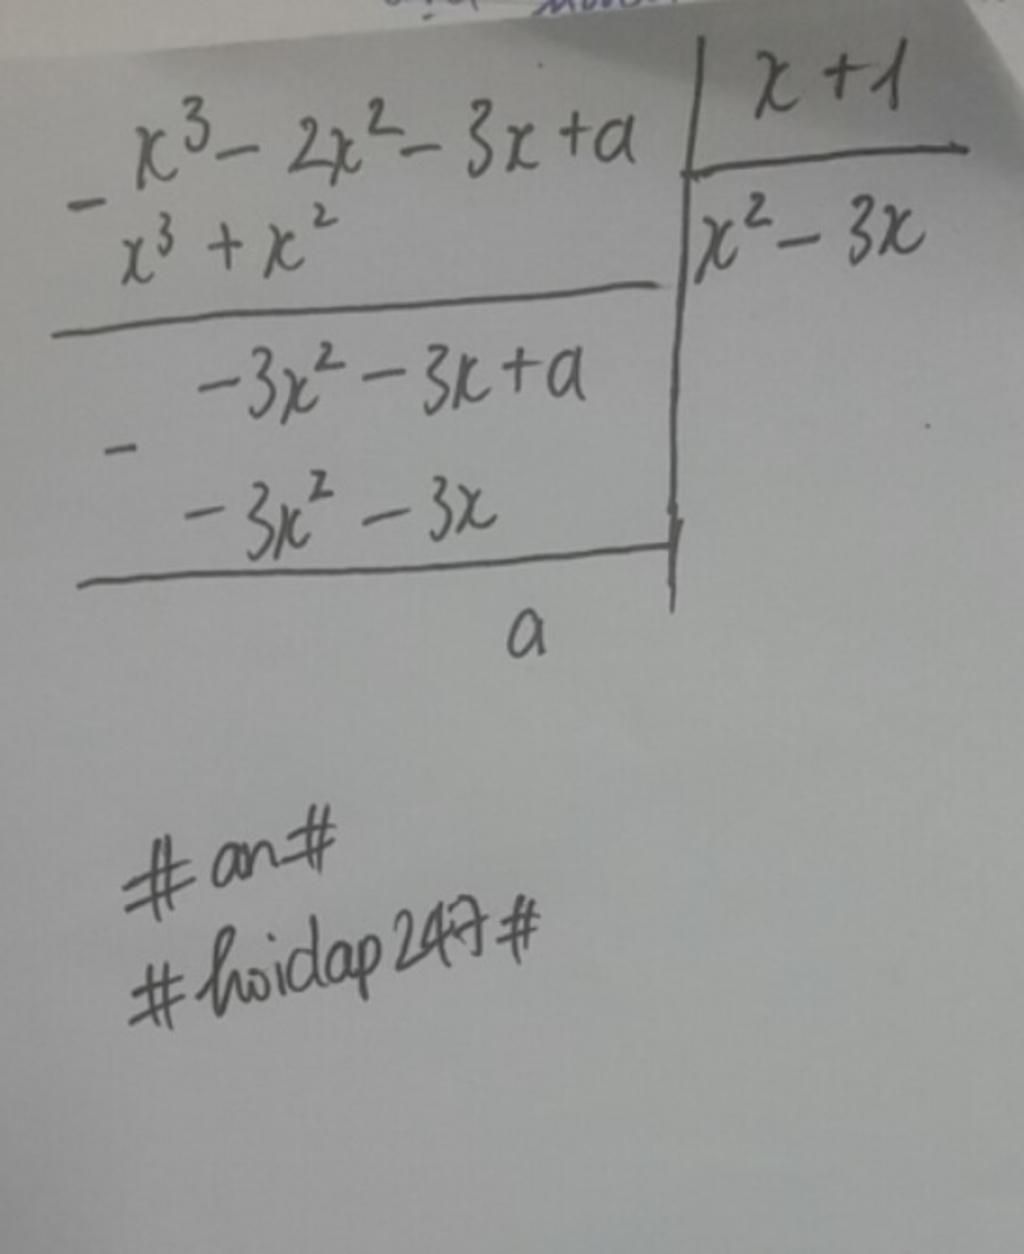 x³ - 2x² - 3x + a
x + 1
-
x³ + x²
x² - 3x
-3x² - 3x + a
-
-3x² - 3x
a
#an#
#hoidap247#